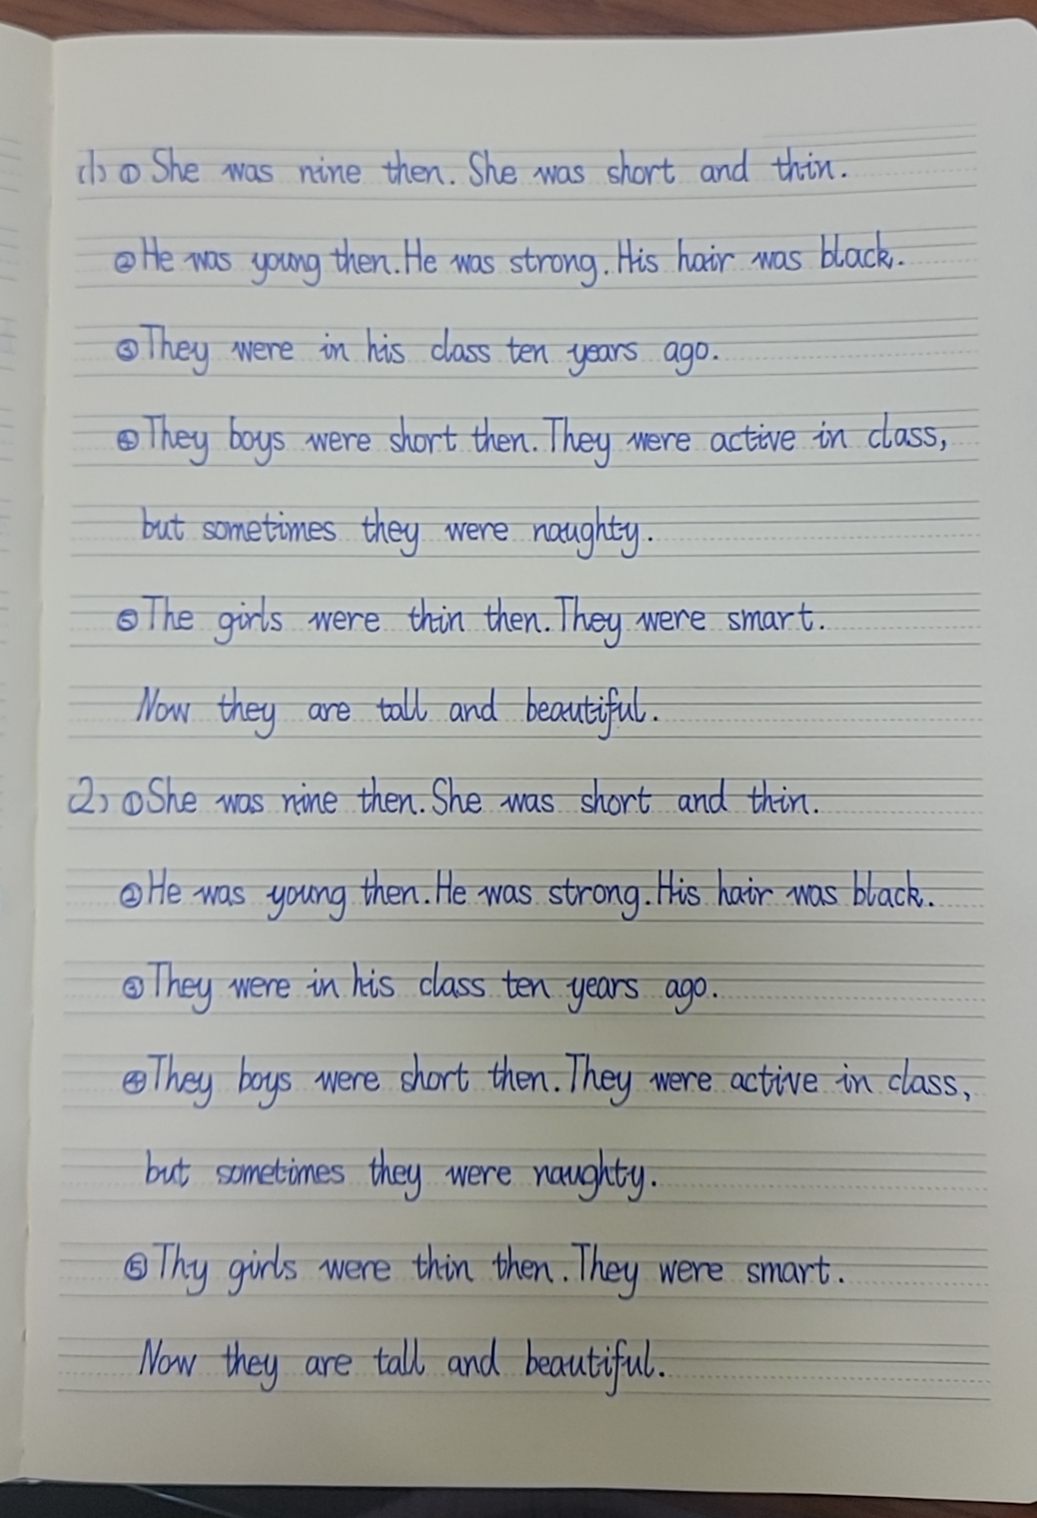 (1) ① She was nine then. She was short and thin.
② He was young then. He was strong. His hair was black.
③ They were in his class ten years ago.
④ They boys were short then. They were active in class,
but sometimes they were naughty.
⑤ The girls were thin then. They were smart.
Now they are tall and beautiful.
2) ① She was nine then. She was short and thin.
② He was young then. He was strong. His hair was black.
③ They were in his class ten years ago.
④ They boys were short then. They were active in class,
but sometimes they were naughty.
⑤ Thy girls were thin then. They were smart.
Now they are tall and beautiful.